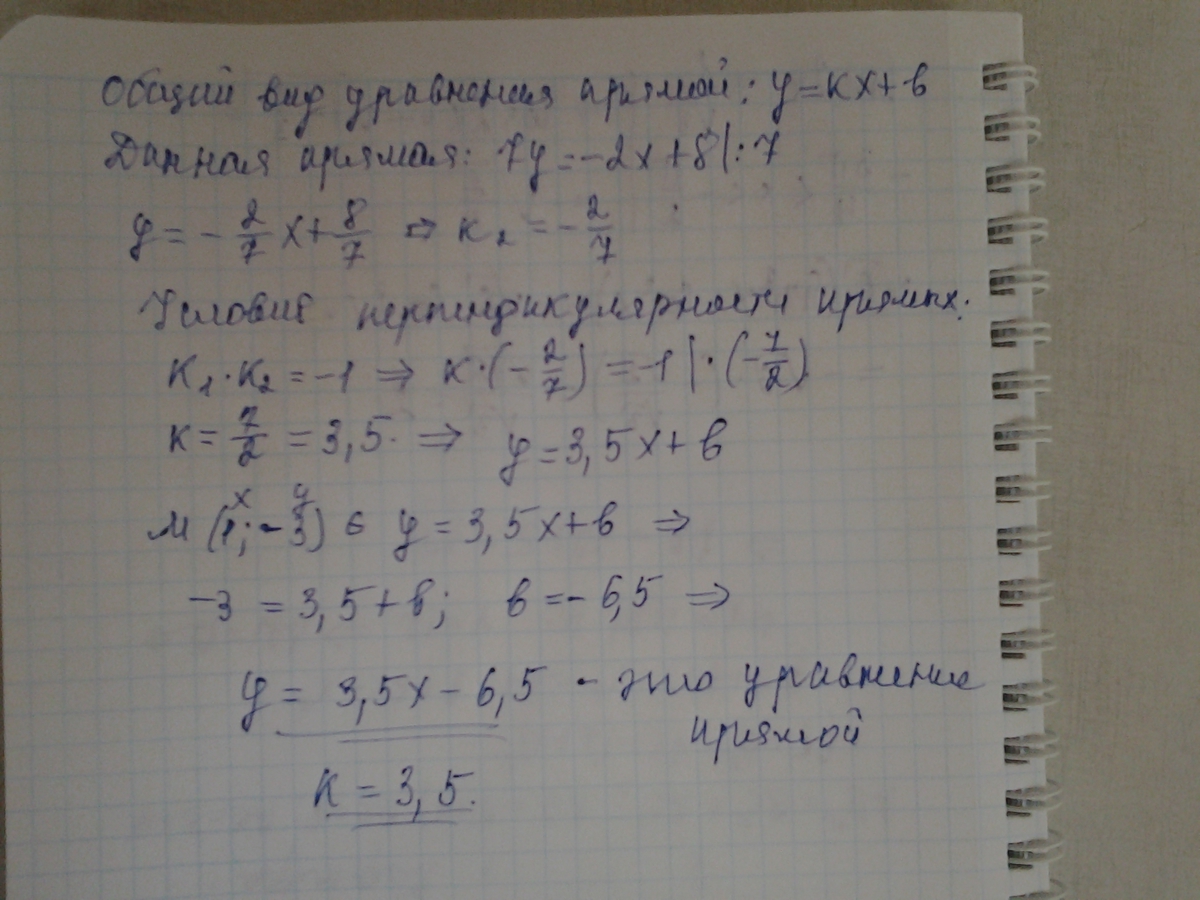 Общий вид уравнения прямой: y=kx+b
Данная прямая: 7y=-2x+8|:7
y=-2/7x+8/7 ⇒ k₂=-2/7
Условия перпендикулярности прямых:
K₁·K₂=-1 ⇒ k·(-2/7)=-1|·(-7/2)
k=7/2=3,5. ⇒ y=3,5x+b
x y
M(1;-3) ∈ y=3,5x+b ⇒
-3=3,5+b; b=-6,5 ⇒
y=3,5x-6,5 - это уравнение
прямой
K=3,5.